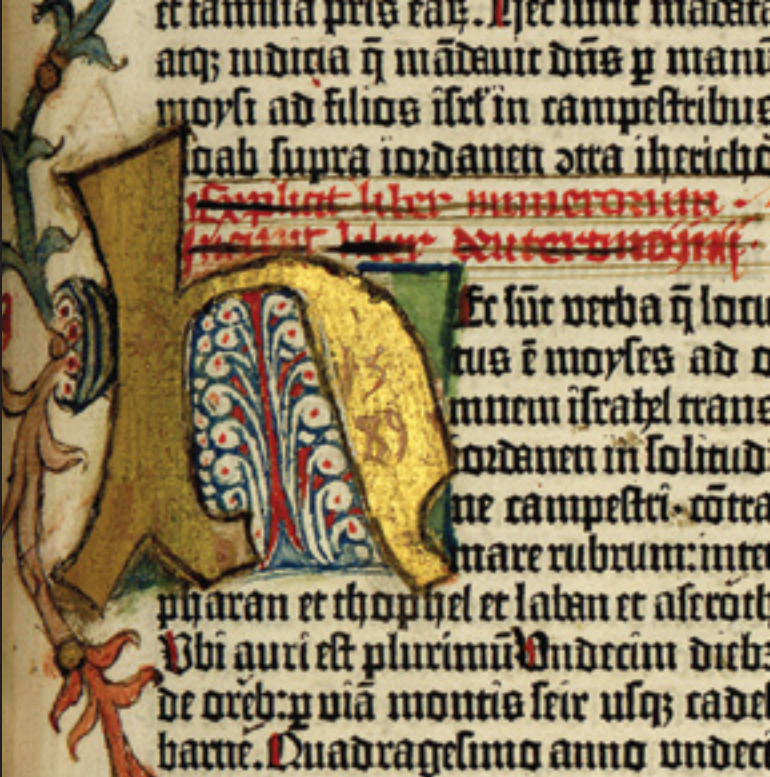 et familia pris eaꝝ. Hec sunt mādata
atqꝫ iudicia q̄ mādauit dn̄s ꝑ manū
moysi ad filios iſrl' in campeſtribus
moab supra iordanen ↄtra iherichō
Explicit liber numerorum
Incipit liber deuteronomij
hEc ſūt verba q̄ locu
15
tus ē moyſes ad o
mnem iſrahel trans
89
iordanen in ſolitudi
ne campeſtri· cōtra
mare rubrum: inter
pharan et thophel et laban et aſeroth
Vbi auri eſt plurimū Vndecim diebꝫ
de oreb: ꝑ viā montis ſeir uſqꝫ cadeſ
barne. Quadrageſimo anno vndeci